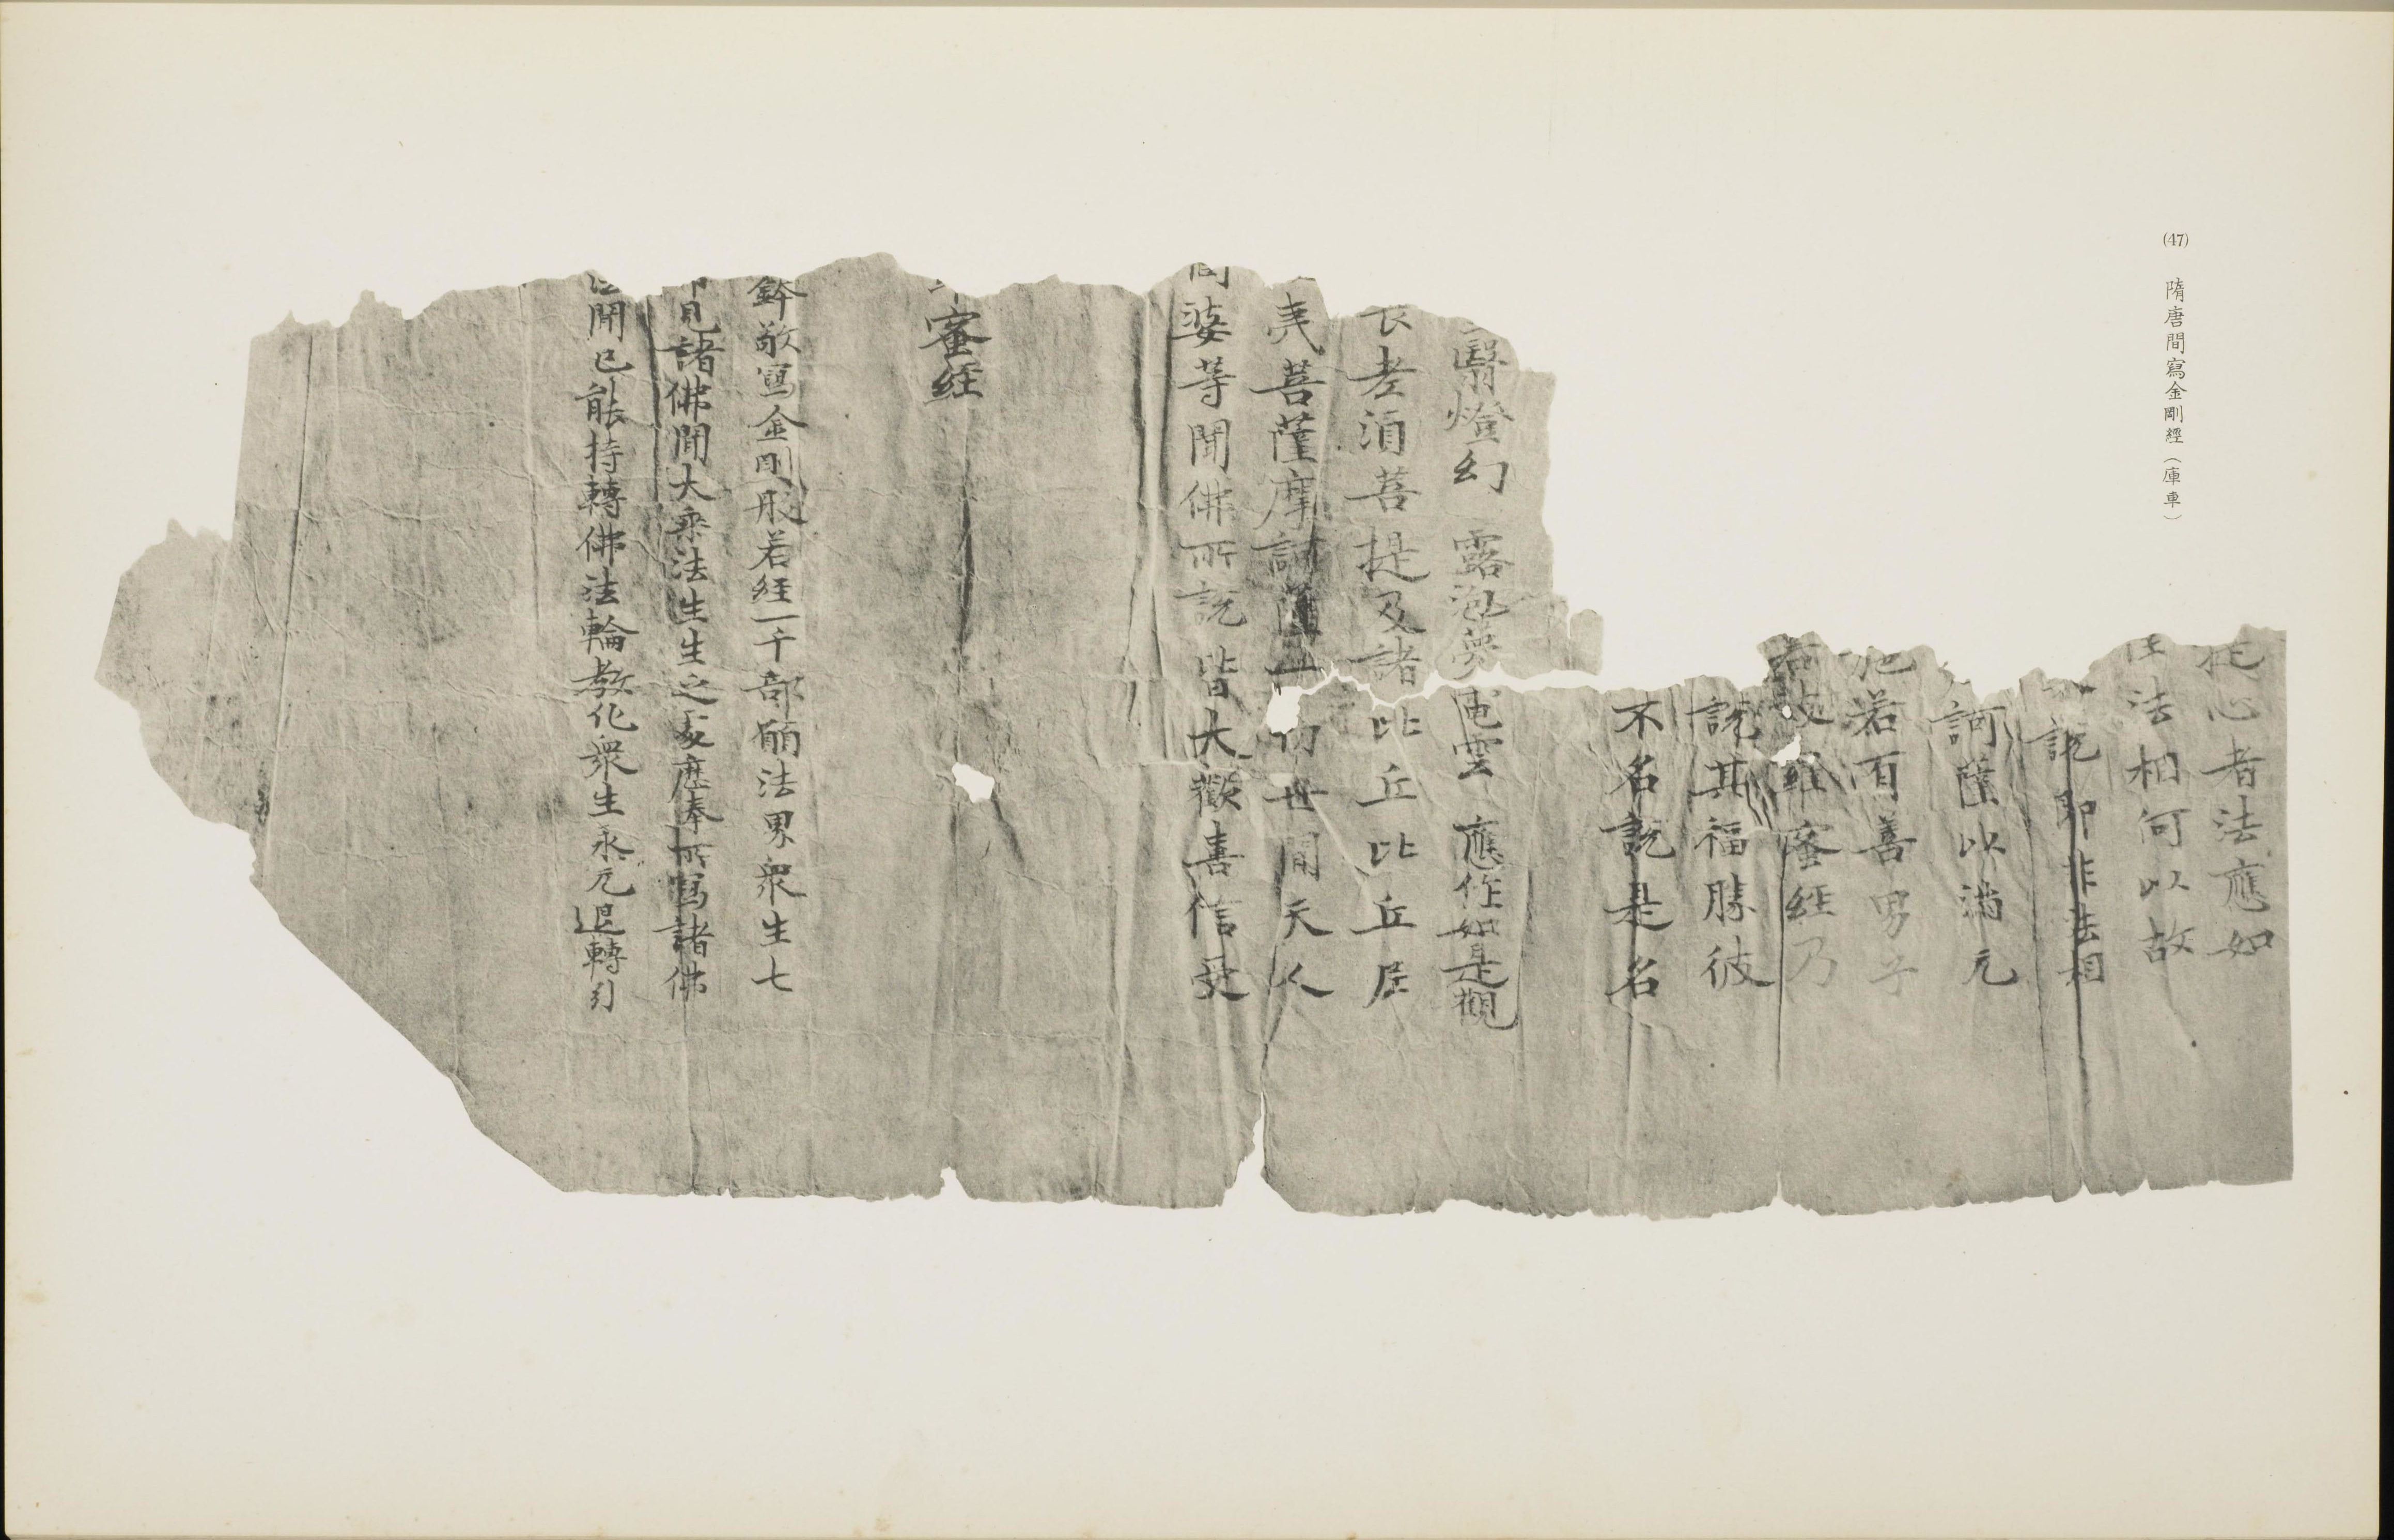 (47) 隋唐間寫金剛經（庫車）
心者法應如
法相何以故
說即非法相
訶薩以滿无
施若有善男子
蜜經乃
說其福勝彼
不名說是名
翳燈幻 露泡夢電雲 應作如是觀
長老湏菩提及諸比丘比丘尼
夷菩薩摩訶薩一切世間天人
婆等聞佛所說皆大歡喜信受
蜜經
敬寫金剛般若經一千部願法界衆生七
見諸佛聞大乘法生生之處應奉所寫諸佛
聞已能持轉佛法輪教化衆生永无退轉引